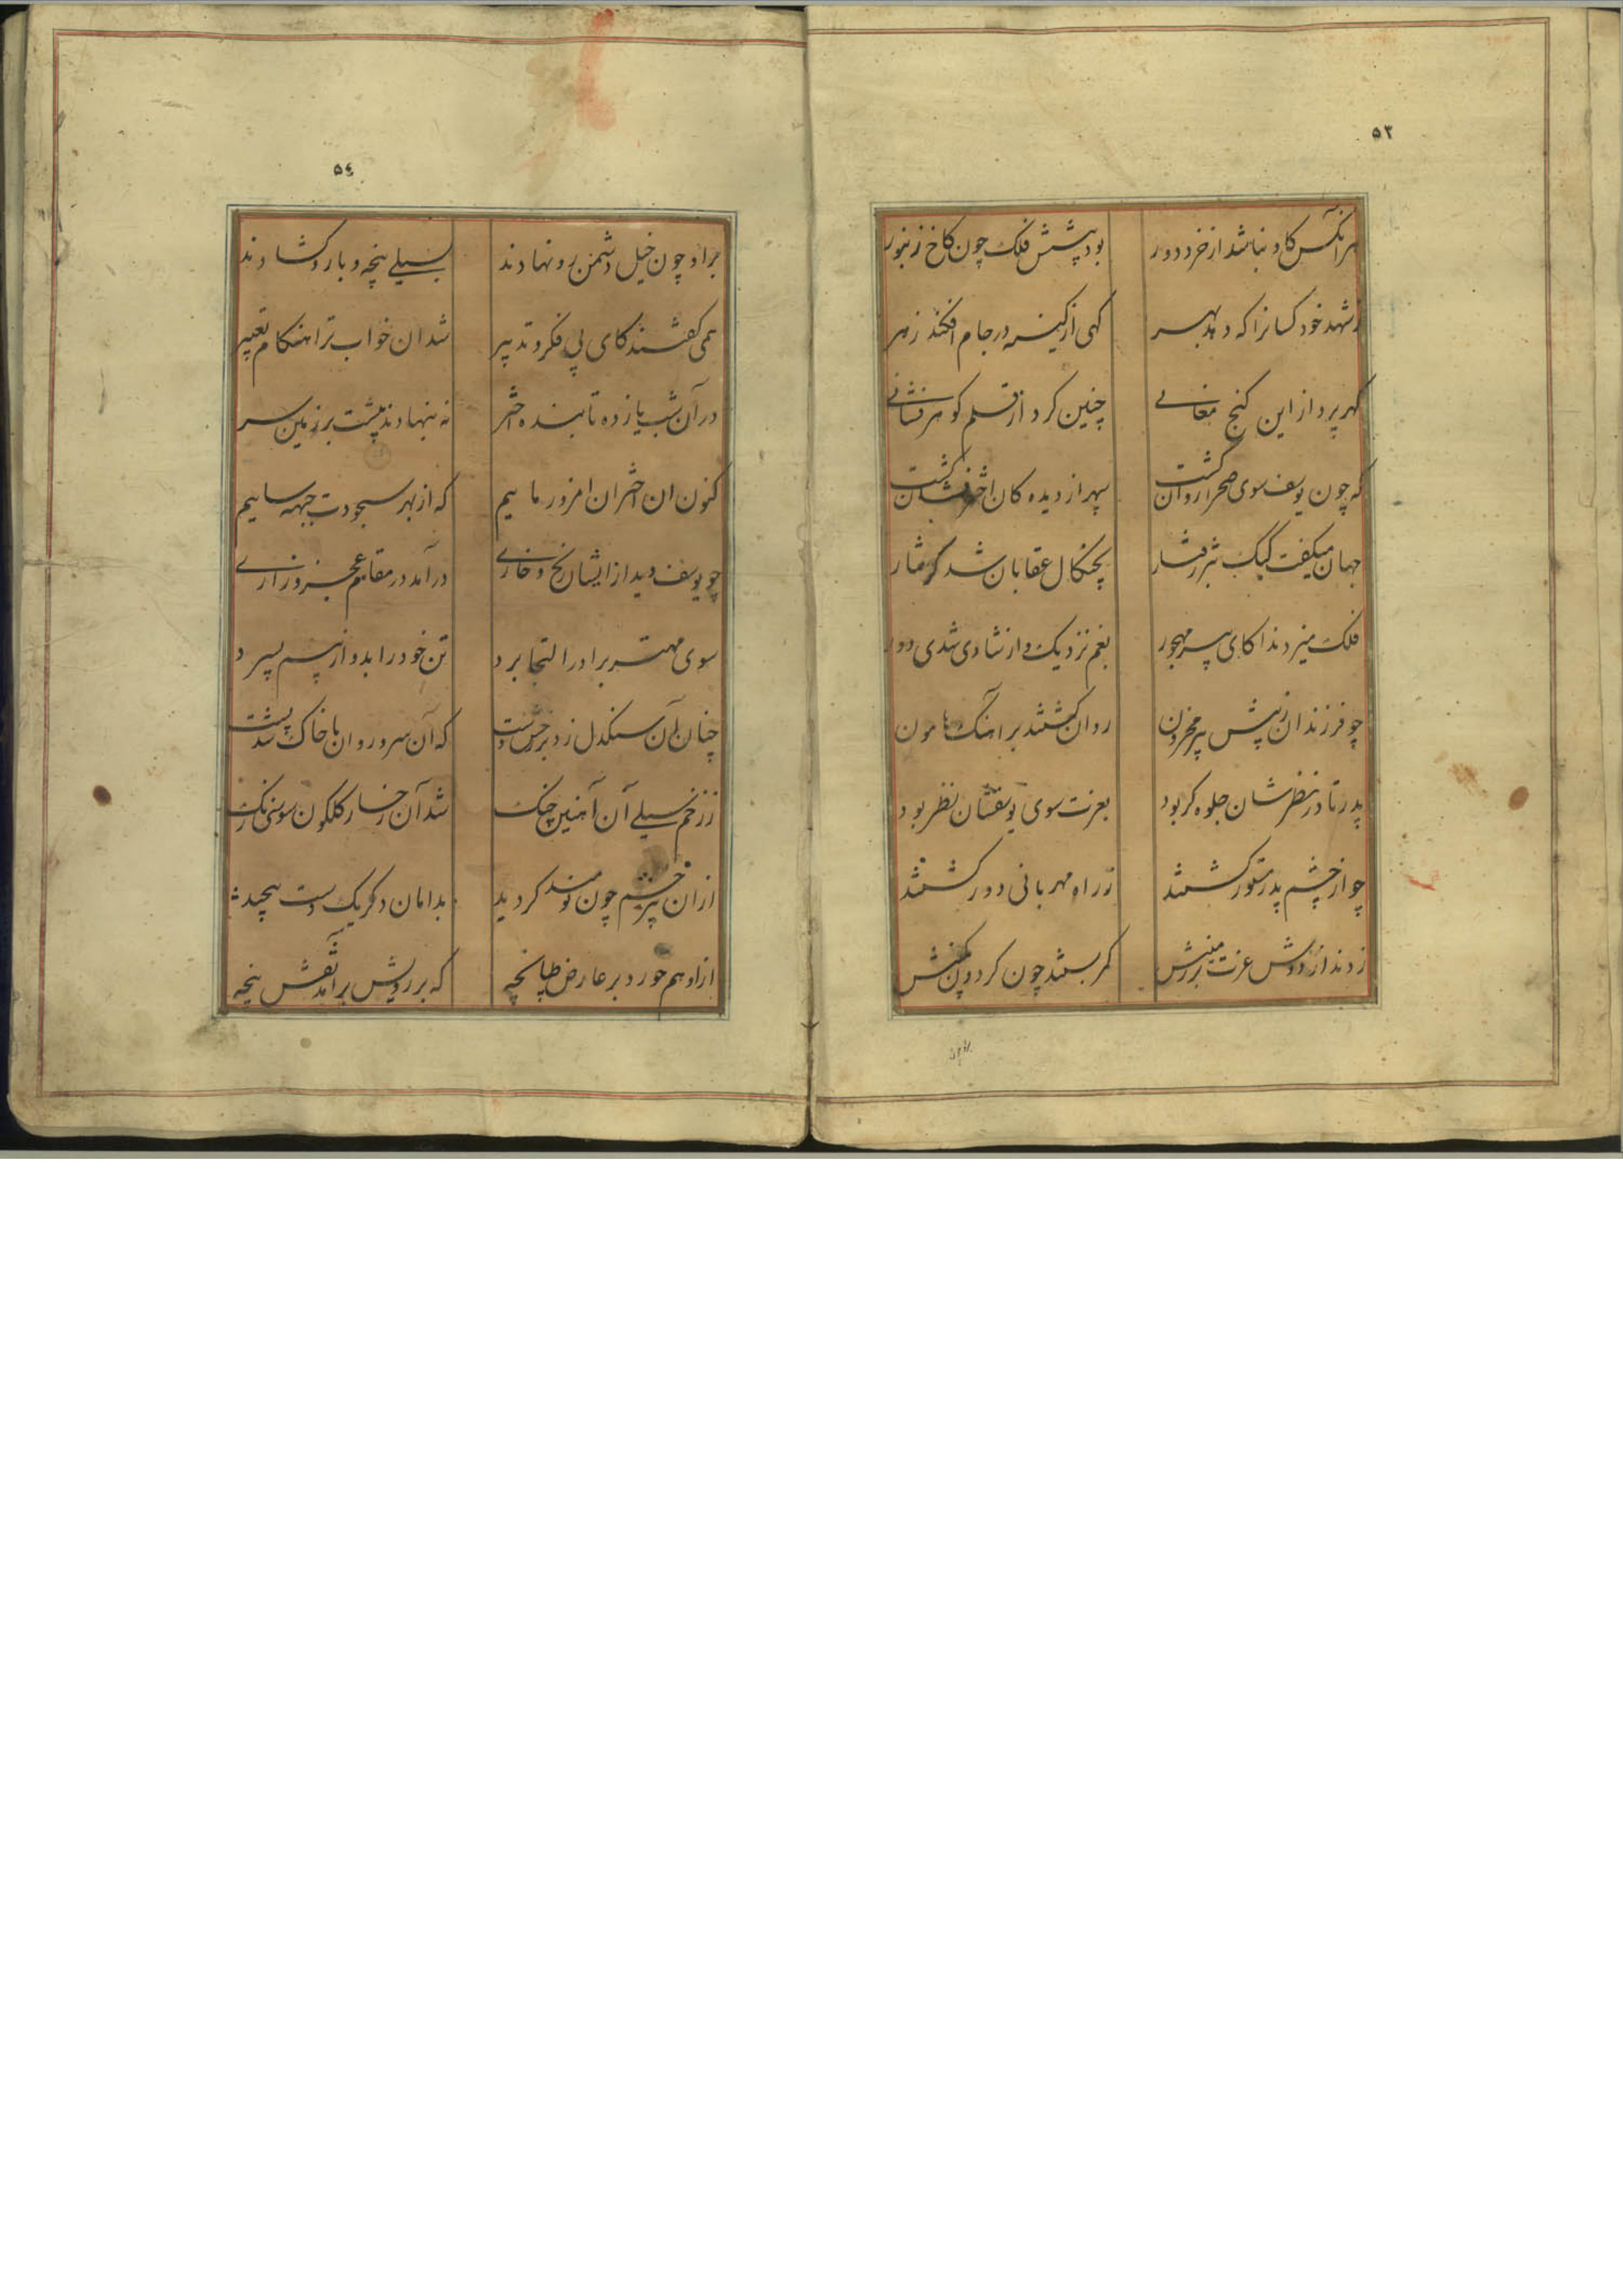 ۵۳
هر انکس کاو نباشد از خرد دور بود پیشش فلک چون کاخ زنبور
ز شهد خود کسانرا که دهد بهر کهی از کینه در جام افکند زهر
کهر پرداز این کنج معانی چنین کرد از قلم کوهر فشانی
که چون یوسف سوی صحرا روان کشت سپهر از دیده کان اختر فشان کشت
جهان میکفت کبک تیز رفتار بچنکال عقابان شد کرفتار
فلک میزد ندا کای پیر مهجور بغم نزدیک و از شادی شدی دور
چو فرزندان ز پیش پیر محزون روان کشتند بر آهنک هامون
پدر تا در نظرشان جلوه کر بود بعزت سوی یوسفشان نظر بود
چو از چشم پدر مستور کشتند ز راه مهربانی دور کشتند
زدند از دوش عزت بر زمینش کمر بستند چون کردون بکینش
۵۴
بر او چون خیل دشمن رو نهادند بسیلی پنجه و بازو کشادند
همی کفتند کای بی فکر و تدبیر شد ان خواب ترا هنکام تعبیر
در آن شب یازده تابنده اختر نه بنهادند پیشت بر زمین سر
کنون ان اختران امروز ماییم که از بهر سجودت جبهه ساییم
چو یوسف دید از ایشان رنج و خاری درآمد در مقام عجز و زاری
سوی مهتر برادر التجا برد تن خود را بدو از بیم بسپرد
چنان آن سنکدل زد بر رخش دست که آن سرو روان با خاک شد پست
ز زخم سیلی آن آهنین چنک شد آن رخسار کلکون سوسنی رنک
از ان پر خشم چون نومید کردید بدامان دکر یک دست پیچید
از او هم خورد بر عارض طپانچه که بر رویش برآمد نقش پنجه